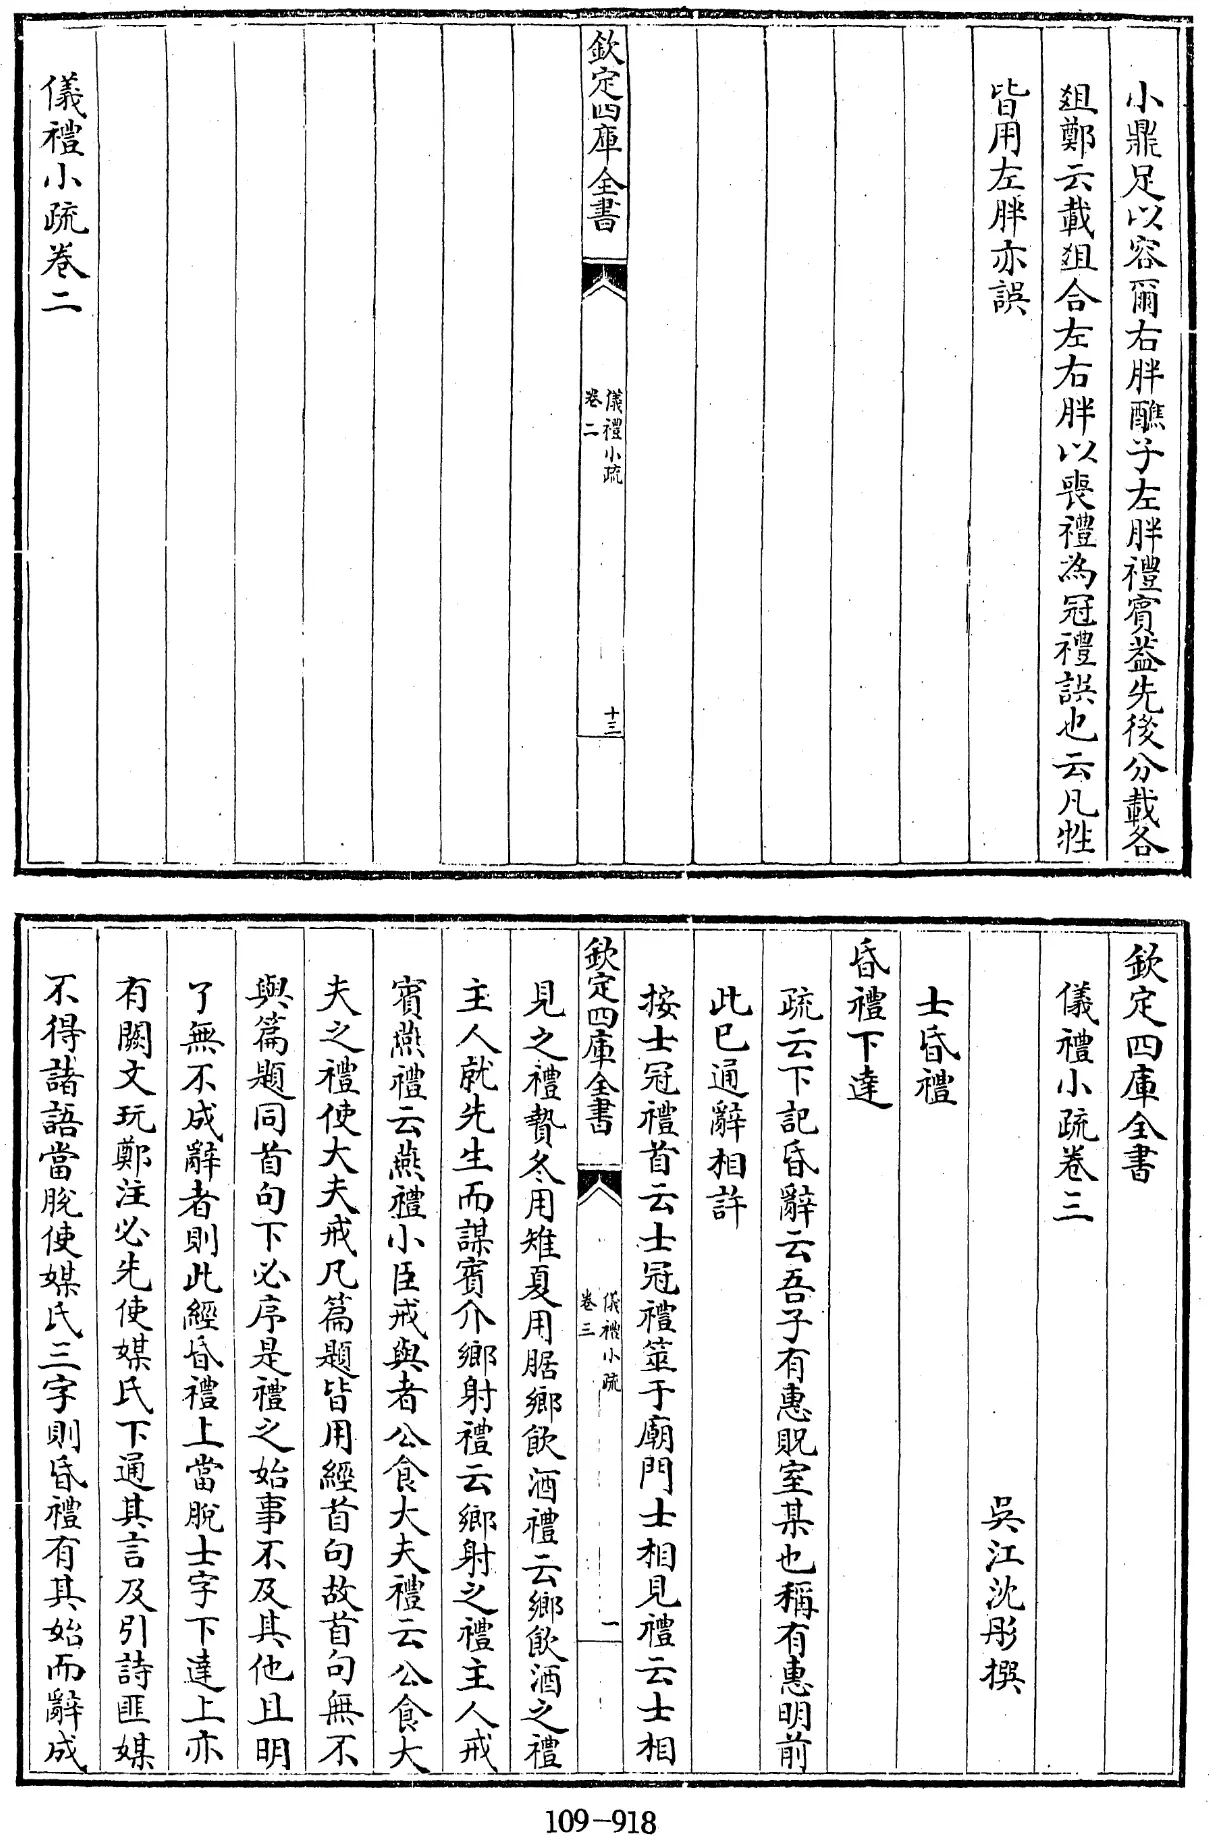 小鼎足以容爾右胖醮子左胖禮賓葢先後分載各
俎鄭云載俎合左右胖以喪禮為冠禮誤也云凡牲
皆用左胖亦誤
欽定四庫全書
儀禮小疏
卷二
十三
儀禮小疏卷二
欽定四庫全書
儀禮小疏卷三
吳江沈彤撰
士昏禮
昏禮下達
疏云下記昏辭云吾子有惠貺室某也稱有惠明前
此已通辭相許
按士冠禮首云士冠禮筮于廟門士相見禮云士相
欽定四庫全書
儀禮小疏
卷三
一
見之禮贄冬用雉夏用腒鄉飲酒禮云鄉飲酒之禮
主人就先生而謀賓介鄉射禮云鄉射之禮主人戒
賓燕禮云燕禮小臣戒與者公食大夫禮云公食大
夫之禮使大夫戒凡篇題皆用經首句故首句無不
與篇題同首句下必序是禮之始事不及其他且明
了無不成辭者則此經昏禮上當脫士字下達上亦
有闕文玩鄭注必先使媒氏下通其言及引詩匪媒
不得諸語當脫使媒氏三字則昏禮有其始而辭成
109-918